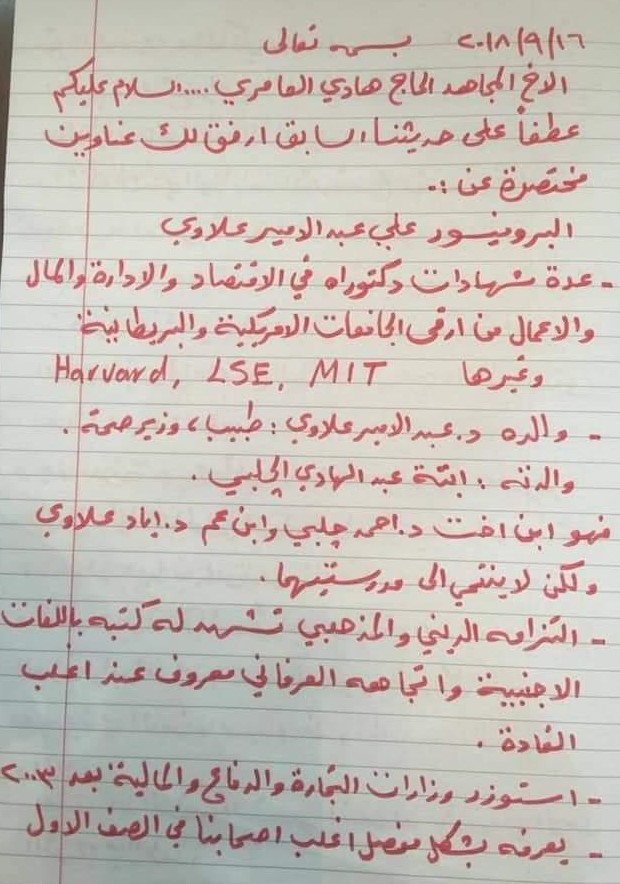 ٢٠١٨/٩/١٦ بسمه تعالى
الاخ المجاهد الحاج هادي العامري .... السلام عليكم
عطفاً على حديثنا السابق ارفق لك عناوين
مختصرة عن :.
البروفيسور علي عبد الامير علاوي
- عدة شهادات دكتوراه في الاقتصاد والادارة والمال
والاعمال من ارقى الجامعات الامريكية والبريطانية
وغيرها Harvard, LSE, MIT
- والده د. عبد الامير علاوي : طبيب، وزير صحة .
والدته : ابنة عبد الهادي الچلبي .
فهو ابن اخت د. احمد چلبي وابن عم د. اياد علاوي
ولكن لا ينتمي الى مدرستيهما .
- التزامه الديني والمذهبي تشهد له كتبه باللغات
الاجنبية واتجاهه العرفاني معروف عند اغلب
القادة .
- استوزر وزارات التجارة والدفاع والمالية بعد ٢٠٠٣
- يعرفه بشكل مفصل اغلب اصحابنا في الصف الاول